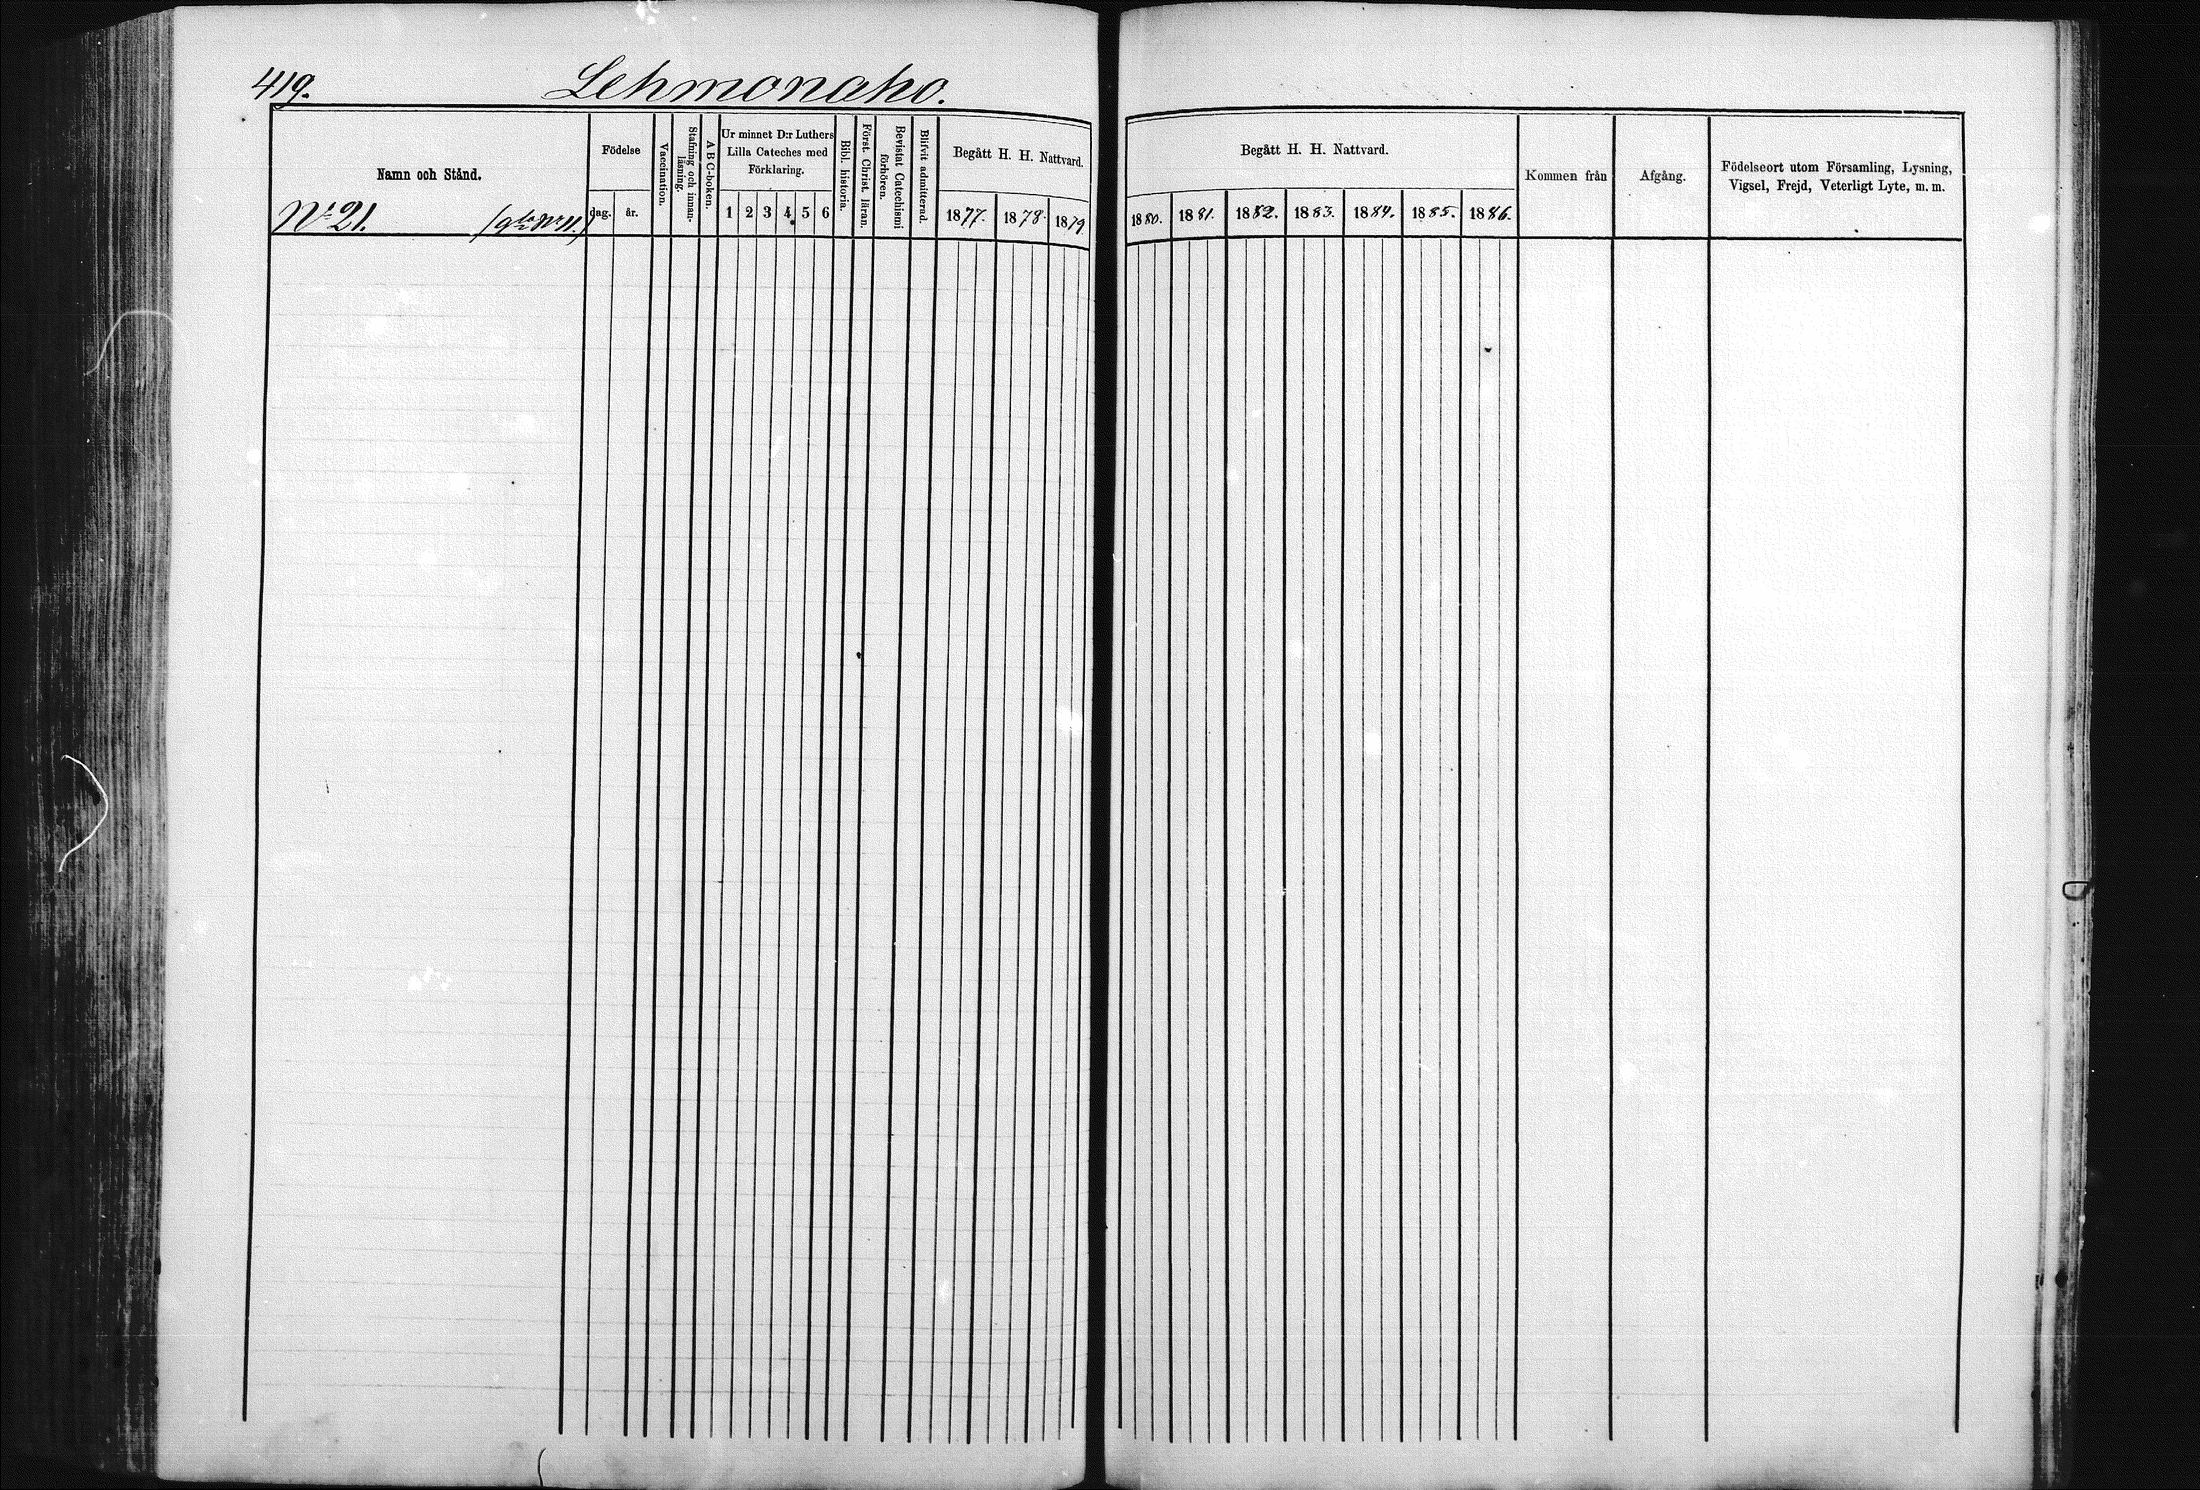 419.
Lehmonaho.
Namn och Stånd.
No 21. (gla No 11.)
Födelse
dag. år.
Vaccination.
Stafning och innan-
läsning.
A B C-boken.
Ur minnet D:r Luthers
Lilla Cateches med
Förklaring.
1 2 3 4 5 6
Bibl. historia.
Först. Christ. läran.
Bevistat Catechismi
förhören.
Blifvit admitterad.
Begått H. H. Nattvard.
1877. 1878. 1879.
Begått H. H. Nattvard.
1880. 1881. 1882. 1883. 1884. 1885. 1886.
Kommen från
Afgång.
Födelseort utom Församling, Lysning,
Vigsel, Frejd, Veterligt Lyte, m. m.